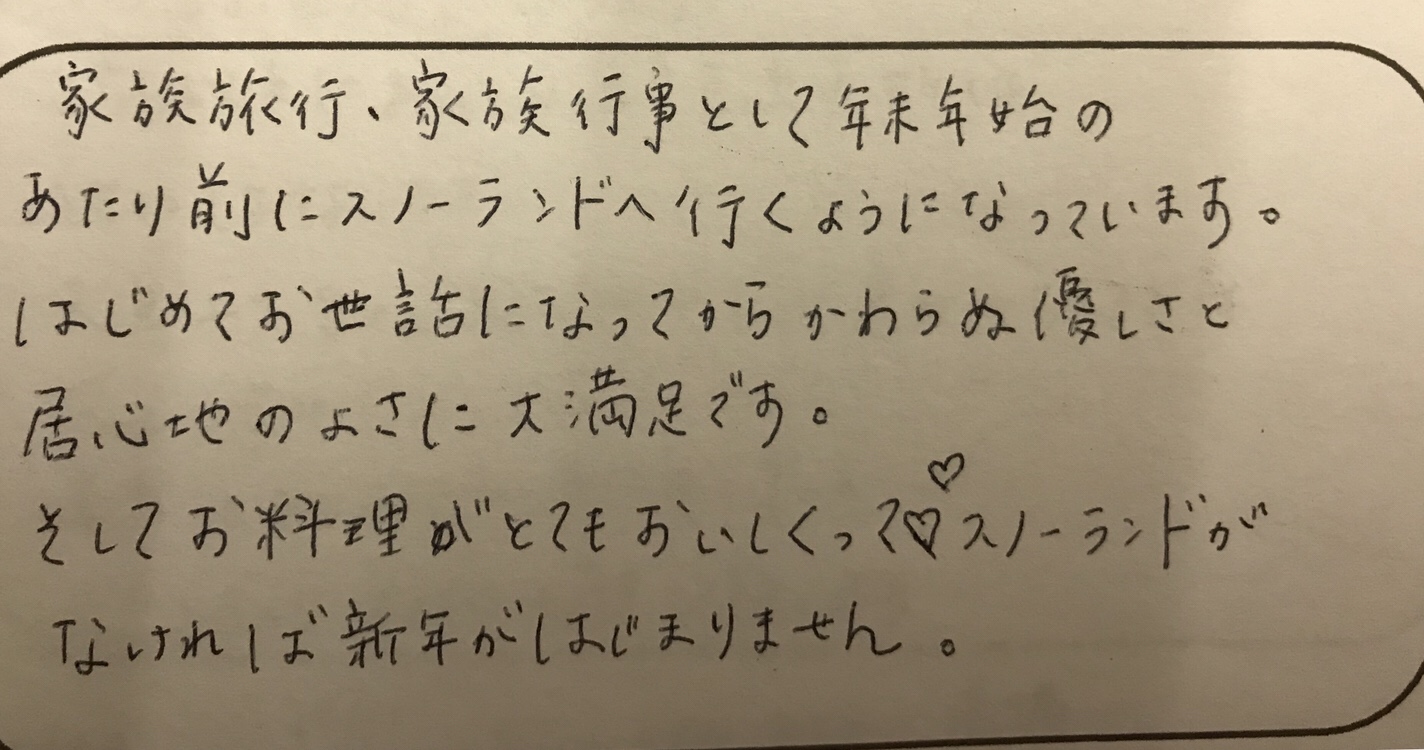 家族旅行、家族行事として年末年始の
あたり前にスノーランドへ行くようになっています。
はじめてお世話になってからかわらぬ優しさと
居心地のよさに大満足です。
そしてお料理がとてもおいしくって♡♡スノーランドが
なければ新年がはじまりません。